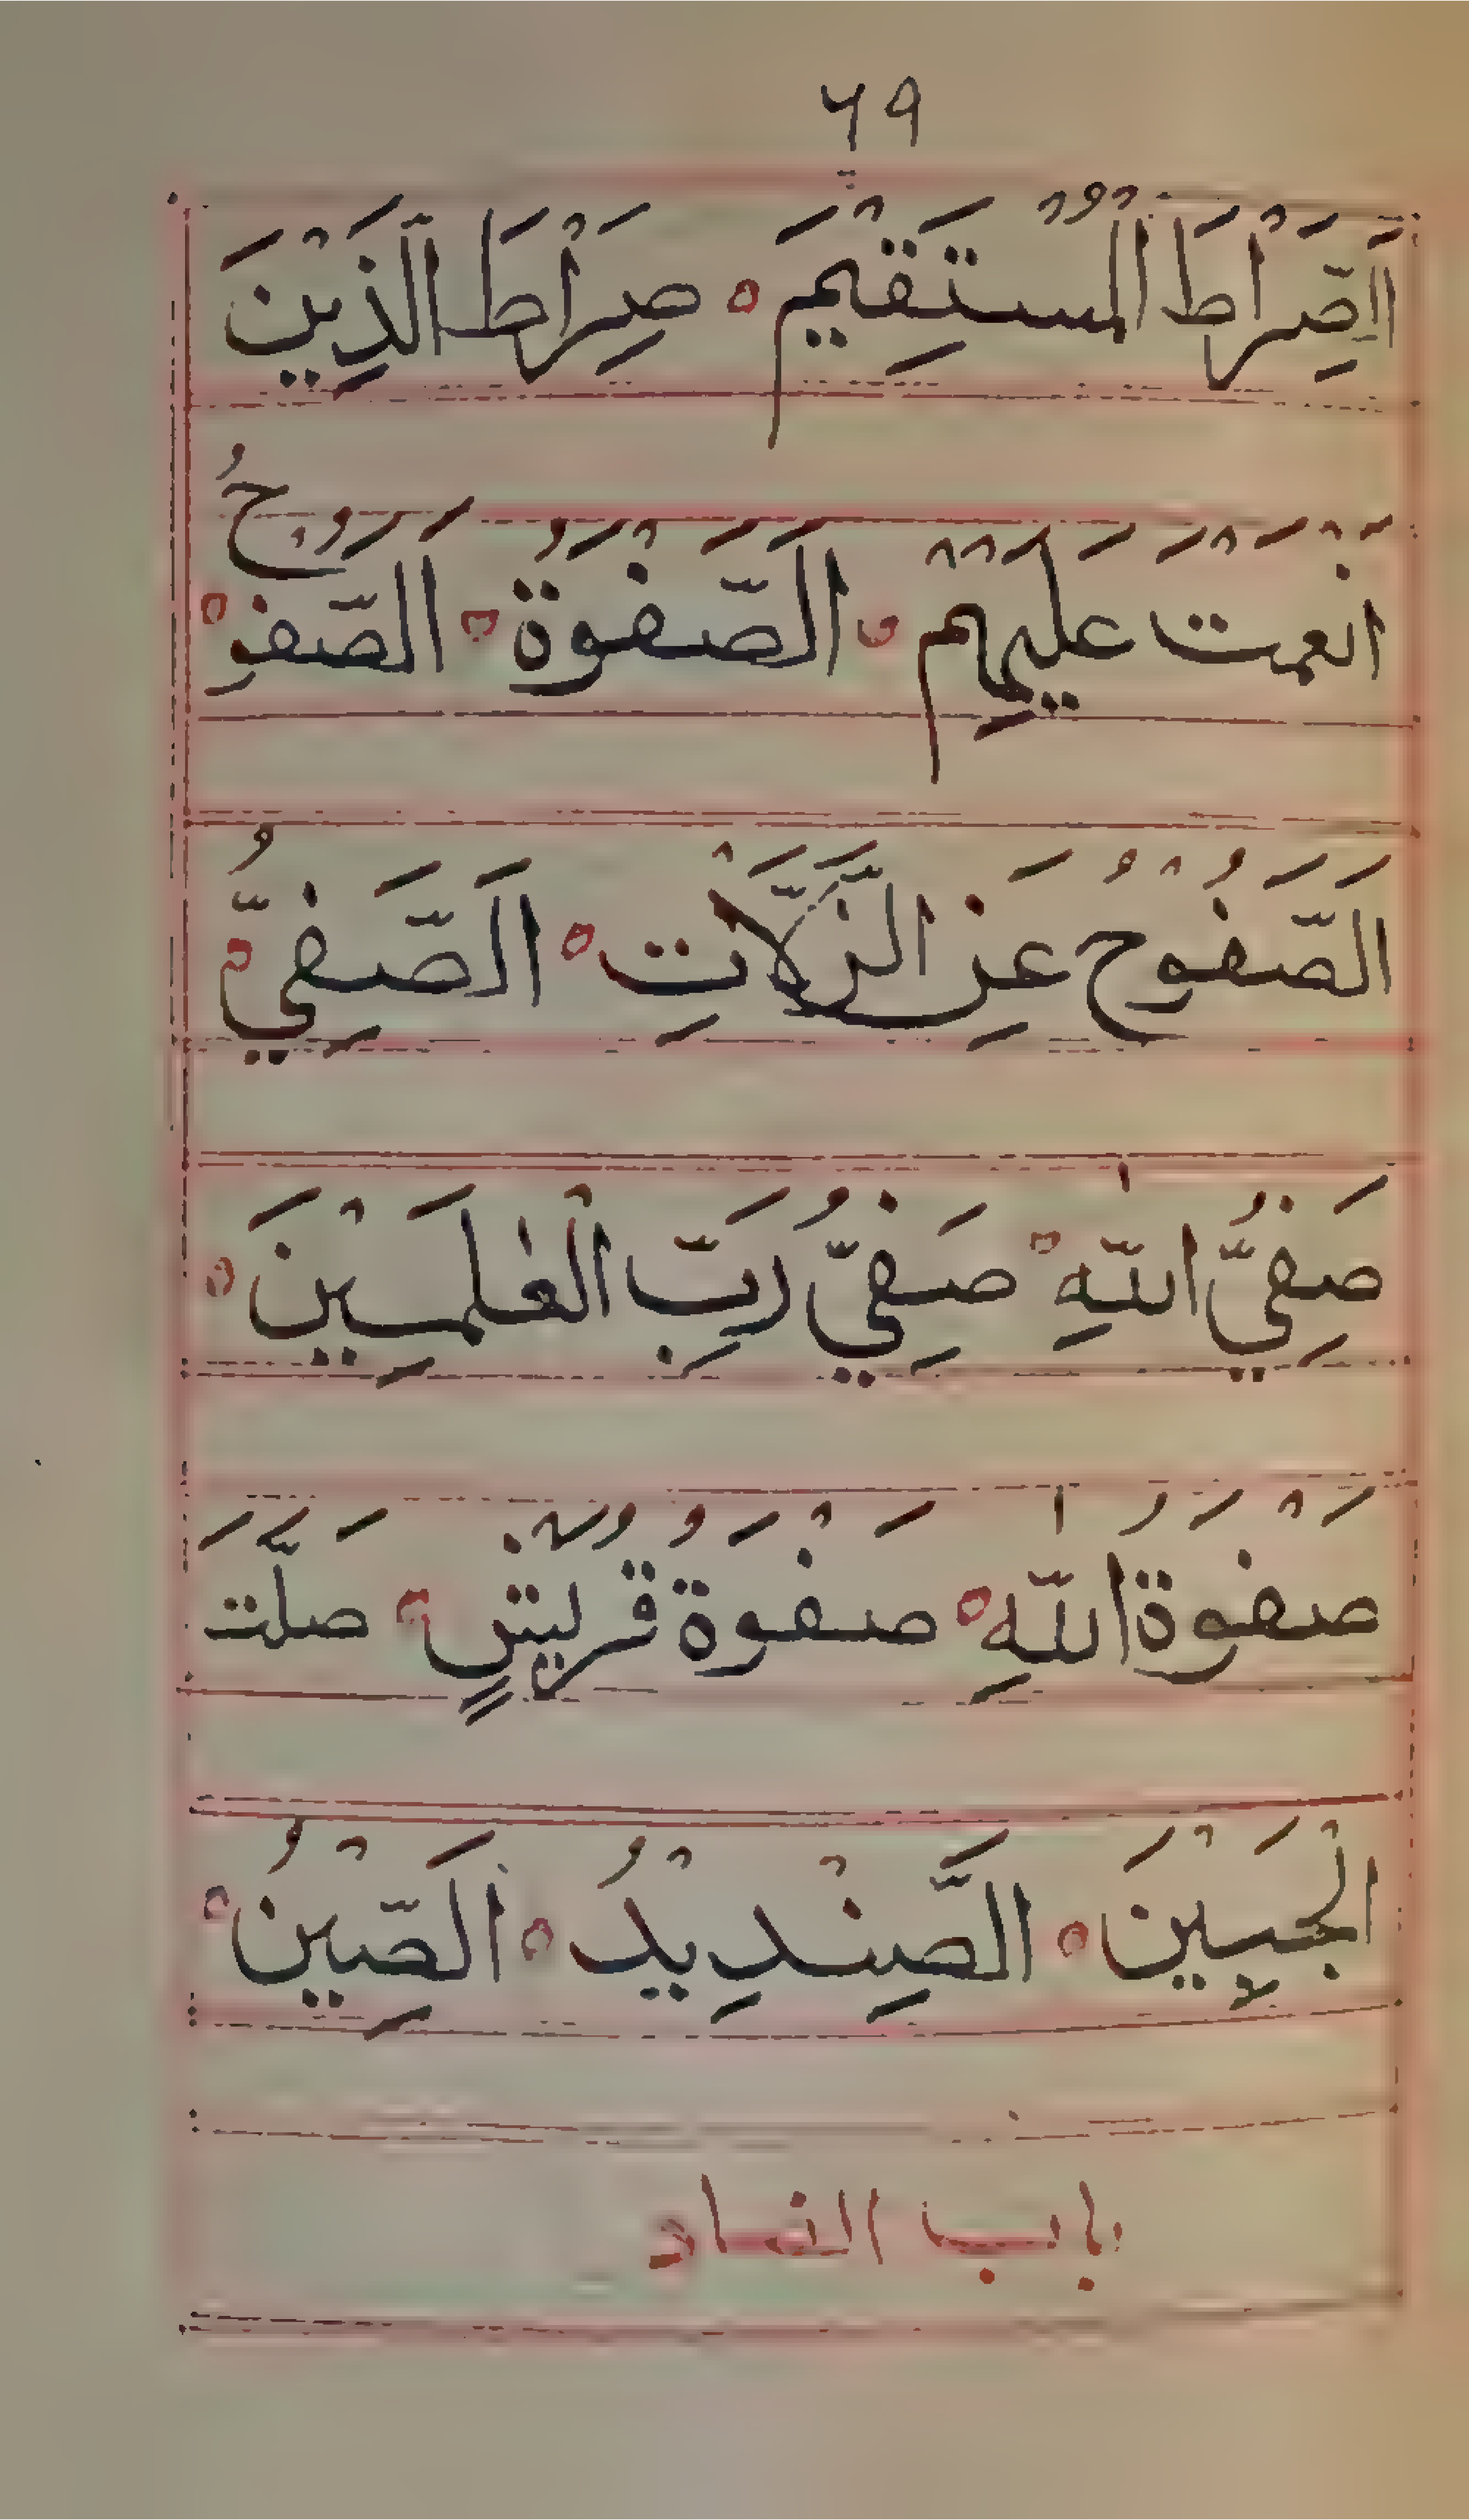 ٦٩
اَلصِّرَاطَ الْمُسْتَقِيْمَ ه صِرَاطَ الَّذِيْنَ
اَنْعَمْتَ عَلَيْهِمْ ه اَلصَّفْوَةُ ه اَلصَّفُوْحُ ه
اَلصَّفُوْحُ عَنِ الزَّلَّاتِ ه اَلصَّفِيُّ ه
صَفِيُّ اللّٰهِ ه صَفِيُّ رَبِّ الْعٰلَمِيْنَ ه
صَفْوَةُ اللّٰهِ ه صَفْوَةُ قُرَيْشٍ ه صَلْتَ
الْجَبِيْنَ ه اَلصِّنْدِيْدُ ه اَلصَّيِّنُ ه
باب الضاد